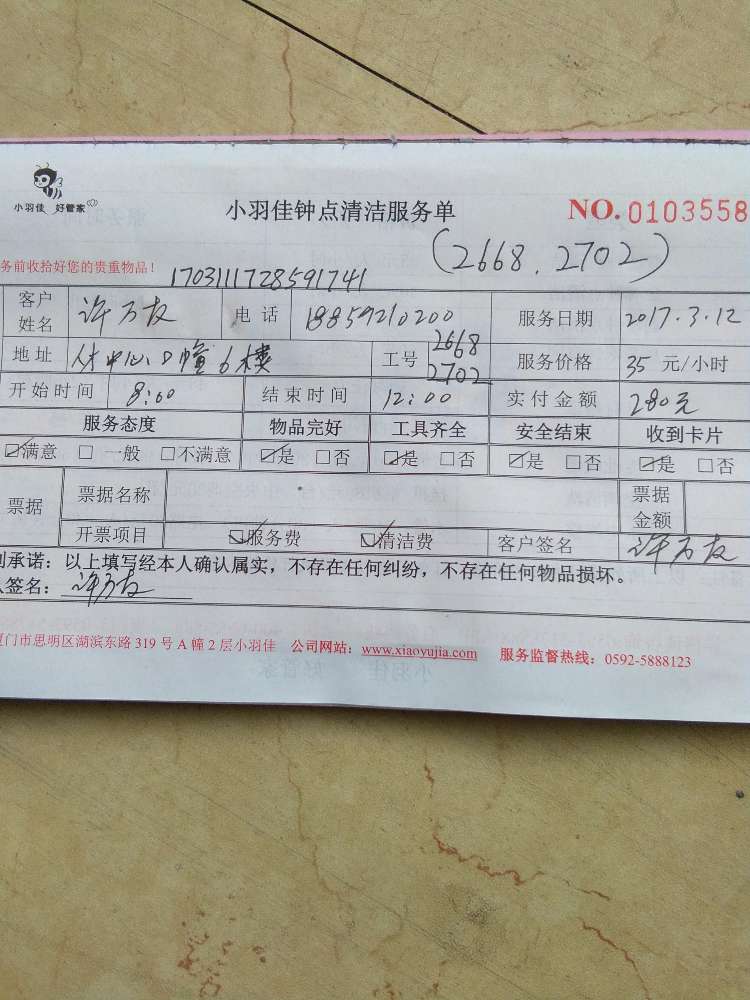 小羽佳 好管家
小羽佳钟点清洁服务单
NO. 0103558
务前收拾好您的贵重物品！ 1703111728591741 (2668.2702)
客户姓名 许万友 电话 18859210200 服务日期 2017.3.12
地址 中心D幢6楼 工号 2668 2702 服务价格 35 元/小时
开始时间 8:00 结束时间 12:00 实付金额 280元
服务态度 物品完好 工具齐全 安全结束 收到卡片
☑满意 □一般 □不满意 ☑是 □否 ☑是 □否 ☑是 □否 ☑是 □否
票据 票据名称 票据金额
开票项目 ☑服务费 ☑清洁费 客户签名 许万友
承诺：以上填写经本人确认属实，不存在任何纠纷，不存在任何物品损坏。
签名：许万友
门市思明区湖滨东路 319 号 A 幢 2 层小羽佳 公司网站：www.xiaoyujia.com 服务监督热线：0592-5888123